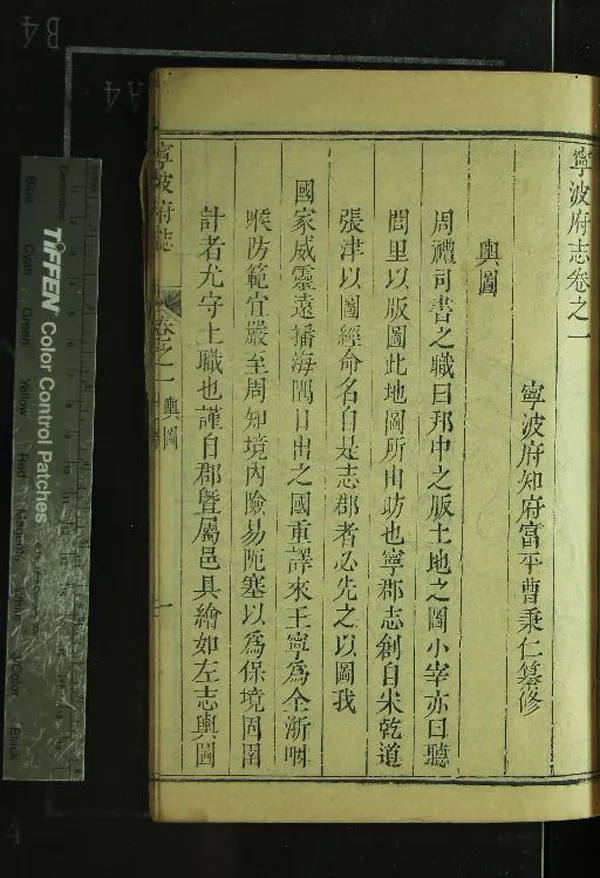 寧波府志卷之一
寧波府知府富平曹秉仁纂修
輿圖
周禮司書之職曰邦中之版土地之圖小宰亦曰聽
閭里以版圖此地圖所由昉也寧郡志創自宋乾道
張津以圖經命名自是志郡者必先之以圖我
國家威靈遠播海隅日出之國重譯來王寧為全浙咽
喉防範宜嚴至周知境內險易阨塞以為保境固圉
計者尤守土職也謹自郡暨屬邑具繪如左志輿圖
寧波府志 卷之一 輿圖 一
TIFFEN Color Control Patches
Blue
Cyan
Green
Yellow
Red
Magenta
White
3/Color
Black
Centimetres
B4
A4
4